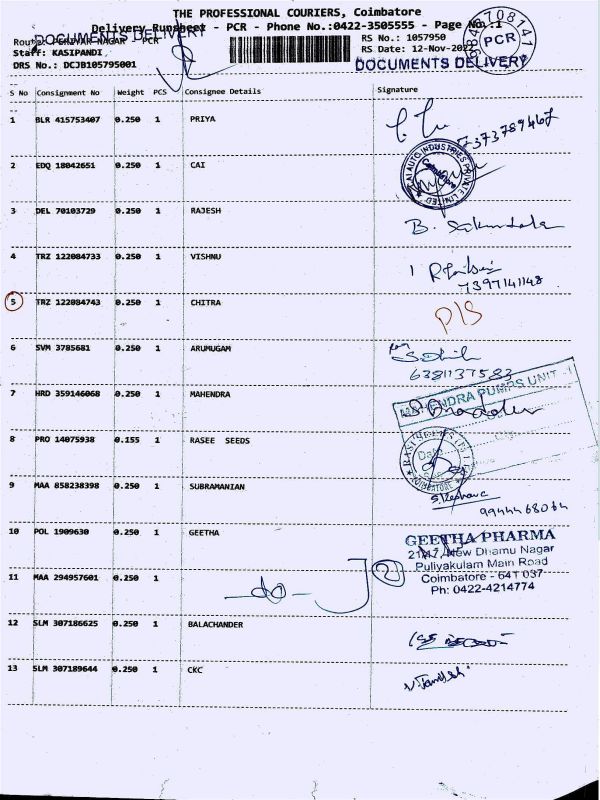 THE PROFESSIONAL COURIERS, Coimbatore
Delivery Runsheet - PCR - Phone No.:0422-3505555 - Page No.:1
DOCUMENTS DELIVERY
Route: PERIYAR NAGAR PCR
Staff: KASIPANDI,
DRS No.: DCJB105795001
RS No.: 1057950
RS Date: 12-Nov-2022
DOCUMENTS DELIVERY
PCR
S No Consignment No Weight PCS Consignee Details Signature
1 BLR 415753407 0.250 1 PRIYA
7373789467
2 EDQ 18042651 0.250 1 CAI
AUTO INDUSTRIES PRIVATE LIMITED
3 DEL 70103729 0.250 1 RAJESH
B.
4 TRZ 122084733 0.250 1 VISHNU
7397141148
5 TRZ 122084743 0.250 1 CHITRA
P/S
6 SVM 3785681 0.250 1 ARUMUGAM
6381137583
7 HRD 359146068 0.250 1 MAHENDRA
MAHENDRA PUMPS UNIT - 1
8 PRO 14075938 0.155 1 RASEE SEEDS
Date
COIMBATORE
9 MAA 858238398 0.250 1 SUBRAMANIAN
S. Keshava
9944468064
10 POL 1909630 0.250 1 GEETHA
GEETHA PHARMA
21/17, New Dhamu Nagar
Puliyakulam Main Road
Coimbatore - 641 037
Ph: 0422-4214774
11 MAA 294957601 0.250 1
-do-
12 SLM 307186625 0.250 1 BALACHANDER
13 SLM 307189644 0.250 1 CKC